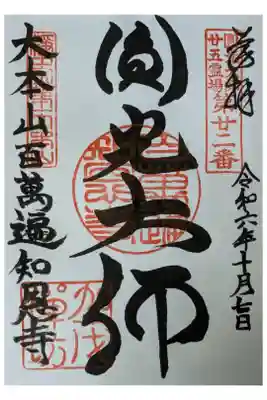 奉拝
廿五霊場
第廿二番
令和六年十月七日
圓光大師
大本山百萬遍知恩寺